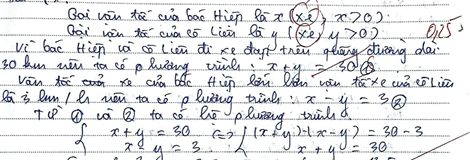 Gọi vân tốc của bác Hiệp là x (xe, x>0) 0,25
Gọi vận tốc của cô Liên là y (xe, y>0)
Vì bác Hiệp và cô Liên đi xe đạp trên quãng đường dài
30 km nên ta có phương trình: x+y = 30 ①
Vân tốc của xe của bác Hiệp lớn hơn vân tốc xe của cô Liên
là 3 km/h nên ta có phương trình: x-y = 3 ②
Từ ① và ② ta có hệ phương trình.
x+y = 30 (=> (x+y)-(x-y) = 30-3
x-y = 3 x+y = 30